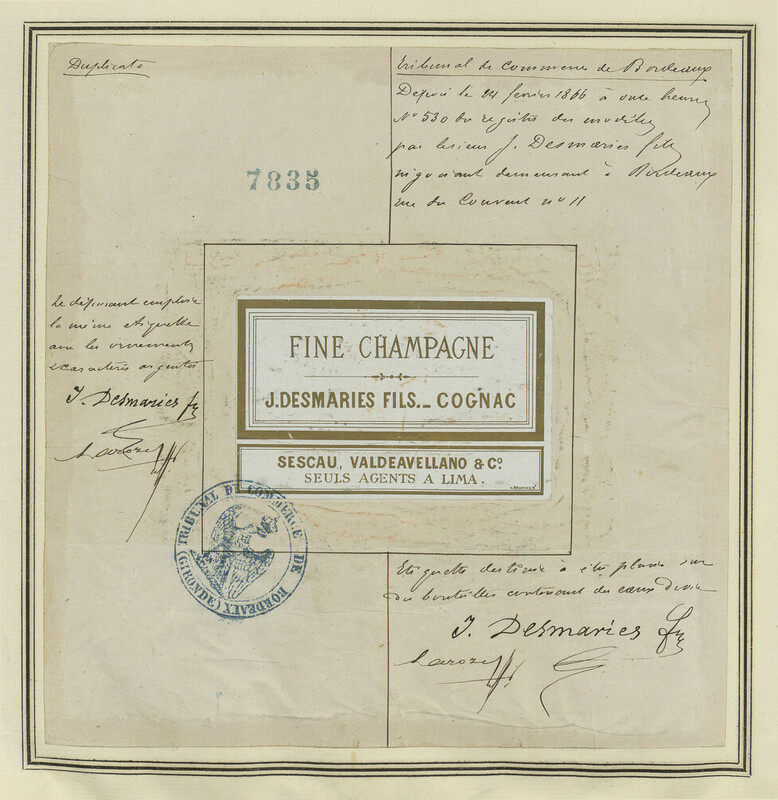 Duplicata
Tribunal de Commerce de Bordeaux
Déposé le 24 février 1866 à onze heures
Nº 530 du registre des modèles
par le sieur J. Desmaries fils
négociant demeurant à Bordeaux
rue du Couvent nº 11
7835
Le déposant emploie
la même étiquette
avec les ornements
& caractères argentés
J. Desmaries fils
FINE CHAMPAGNE
J. DESMARIES FILS._ COGNAC
SESCAU, VALDEAVELLANO & Cº.
SEULS AGENTS A LIMA.
TRIBUNAL DE COMMERCE DE BORDEAUX (GIRONDE)
Etiquette destinée à être placée sur
des bouteilles contenant des eaux de vie
J. Desmaries fils